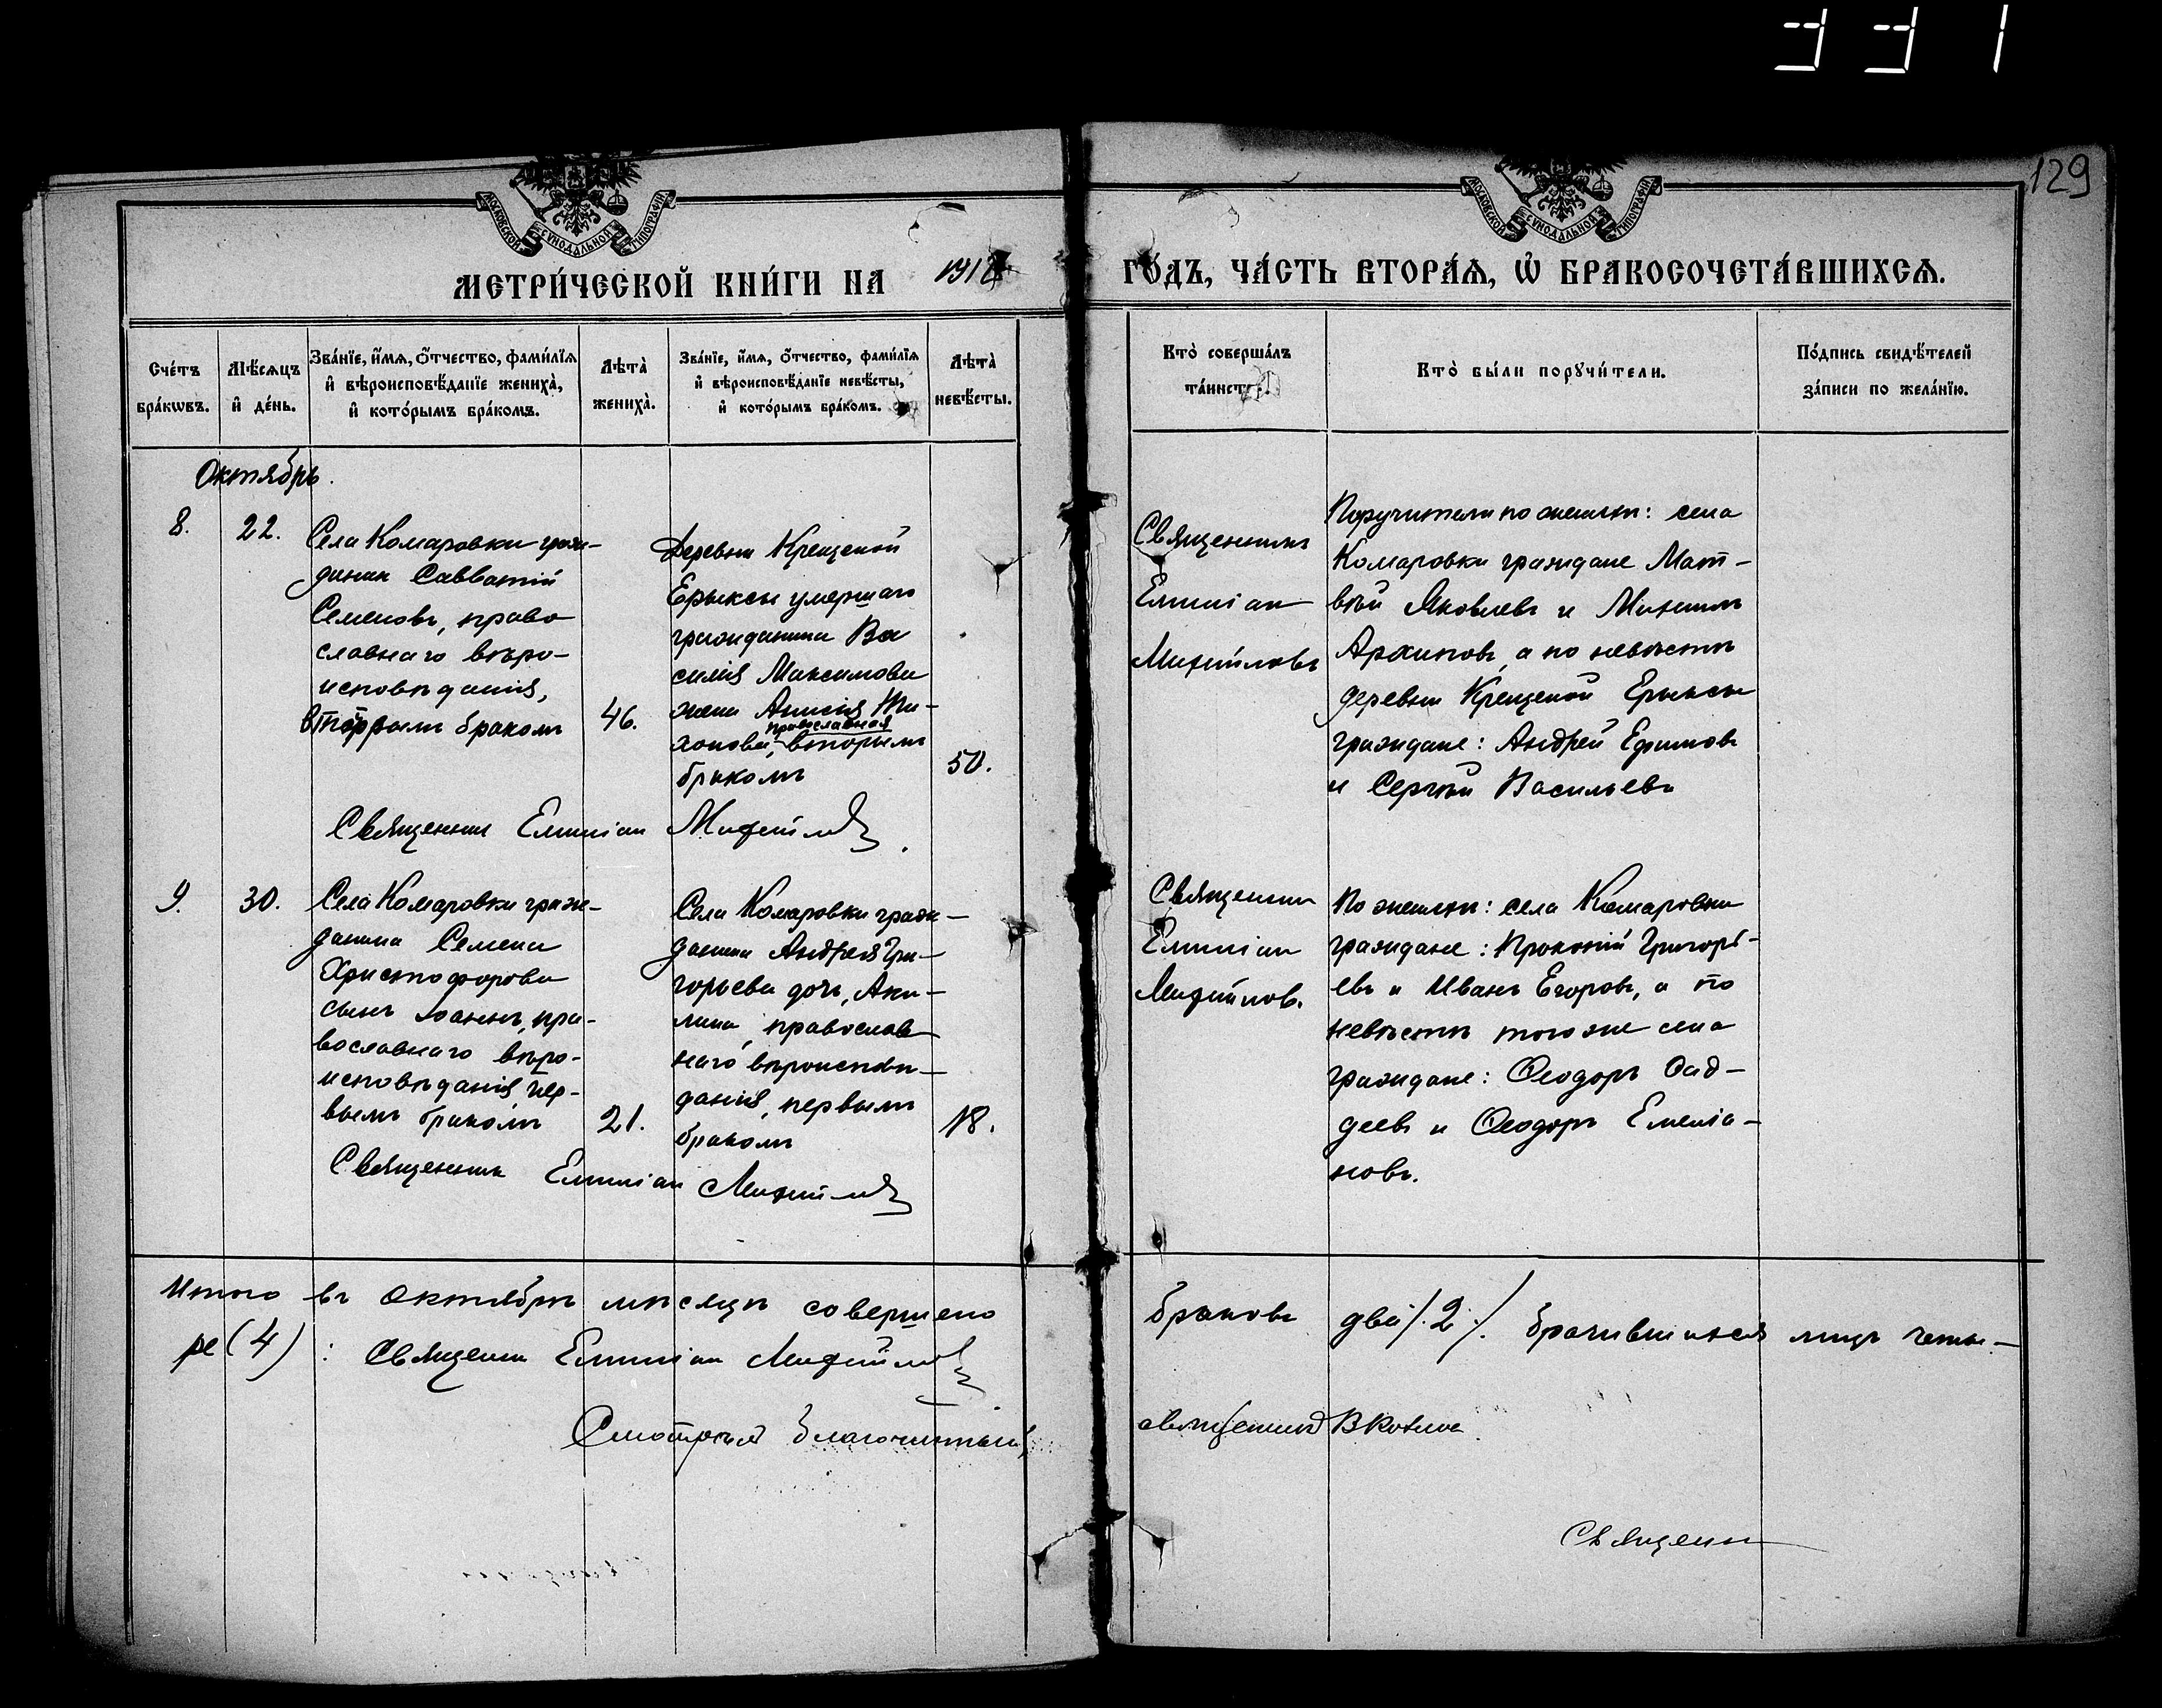 331
129
МОСКОВСКОЙ СѴНОДАЛЬНОЙ ТИПОГРАФІИ
МОСКОВСКОЙ СѴНОДАЛЬНОЙ ТИПОГРАФІИ
МЕТРИ́ЧЕСКОЙ КНИ́ГИ НА 191
ГО́ДЪ, ЧА́СТЬ ВТОРА́Ѧ, Ѽ БРАКОСОЧЕТА́ВШИХСѦ.
Сче́тъ
бра́кѡвъ.
Мѣ́сѧцъ
и҆ де́нь.
Зва́нїе, и҆́мѧ, ѻ҆́тчество, фами́лїѧ
и҆ вѣроисповѣ́данїе жениха̀,
и҆ кото́рымъ бра́комъ.
Лѣта̀
жениха̀.
Зва́нїе, и҆́мѧ, ѻ҆́тчество, фами́лїѧ
и҆ вѣроисповѣ́данїе невѣ́сты,
и҆ кото́рымъ бра́комъ.
Лѣта̀
невѣ́сты.
Кто̀ соверша́лъ
та́инство.
Кто̀ бы́ли порꙋчи́тели.
По́дпись свидѣ́телей
за́писи по жела́нїю.
Октябрь.
8.
22.
Села Комаровки граж-
данин Савватій
Семеновъ, право
славнаго вѣро-
исповѣданія,
вторымъ бракомъ
46.
Деревни Крещеной
Ерыксы умершаго
гражданина Ва
силія Максимова
жена Анисія Ти-
православная
хонова, вторымъ
бракомъ
50.
Священникъ
Емиліан
Михайловъ
Поручители по женихѣ: села
Комаровки граждане Мат-
вѣй Яковлевъ и Михаилъ
Архиповъ, а по невѣстѣ
деревни Крещеной Ерыксы
граждане: Андрей Ефимовъ
и Сергѣй Васильевъ
Священник Емиліан Михайлов
9.
30.
Села Комаровки граж-
данина Семена
Христофорова
сынъ Іоаннъ, пра-
вославнаго вѣро-
исповѣданія, пер-
вымъ бракомъ
21.
Села Комаровки граж-
данина Андрея Гри-
горьева дочь, Аки-
лина, православ
наго вѣроисповѣ-
данія, первымъ
бракомъ
18.
Священник
Емиліан
Михайлов.
По женихѣ: села Комаровки
граждане: Прокопій Григорі-
евъ и Иванъ Егоровъ, а по
невѣстѣ того же села
граждане: Ѳеодоръ Ѳад-
деевъ и Ѳеодоръ Емеліа-
новъ.
Священникъ Емиліан Михайлов
Итого въ октябрѣ мѣсяцѣ совершено браковъ два /.2./. Брачившихся лицъ четы-
ре (4): Священник Емиліан Михайлов
Смотрѣлъ Благочинный, священник В
Священник